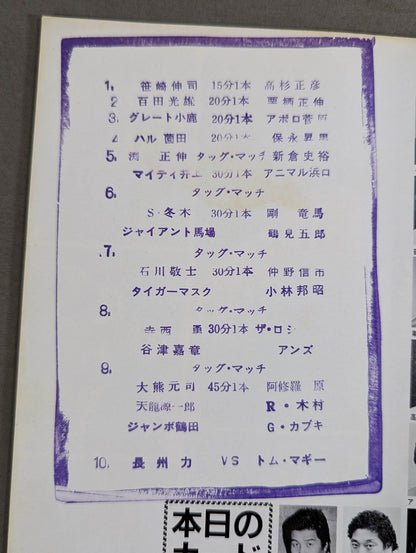 1. 笹崎伸司 15分1本 高杉正彦
2 百田光雄 20分1本 栗栖正伸
3. グレート小鹿 20分1本 アポロ菅原
4 ハル薗田 20分1本 保永昇男
5. 渕 正伸 タッグ・マッチ 新倉史裕
マイティ井上 30分1本 アニマル浜口
6. タッグ・マッチ
S・冬木 30分1本 剛 竜馬
ジャイアント馬場 鶴見五郎
7. タッグ・マッチ
石川敬士 30分1本 仲野信市
タイガーマスク 小林邦昭
8. タッグ・マッチ
寺西 勇 30分1本 ザ・ロシ
谷津嘉章 アンズ
9. タッグ・マッチ
大熊元司 45分1本 阿修羅 原
天龍源一郎 R・木村
ジャンボ鶴田 G・カブキ
10. 長州力 VS トム・マギー
本日の